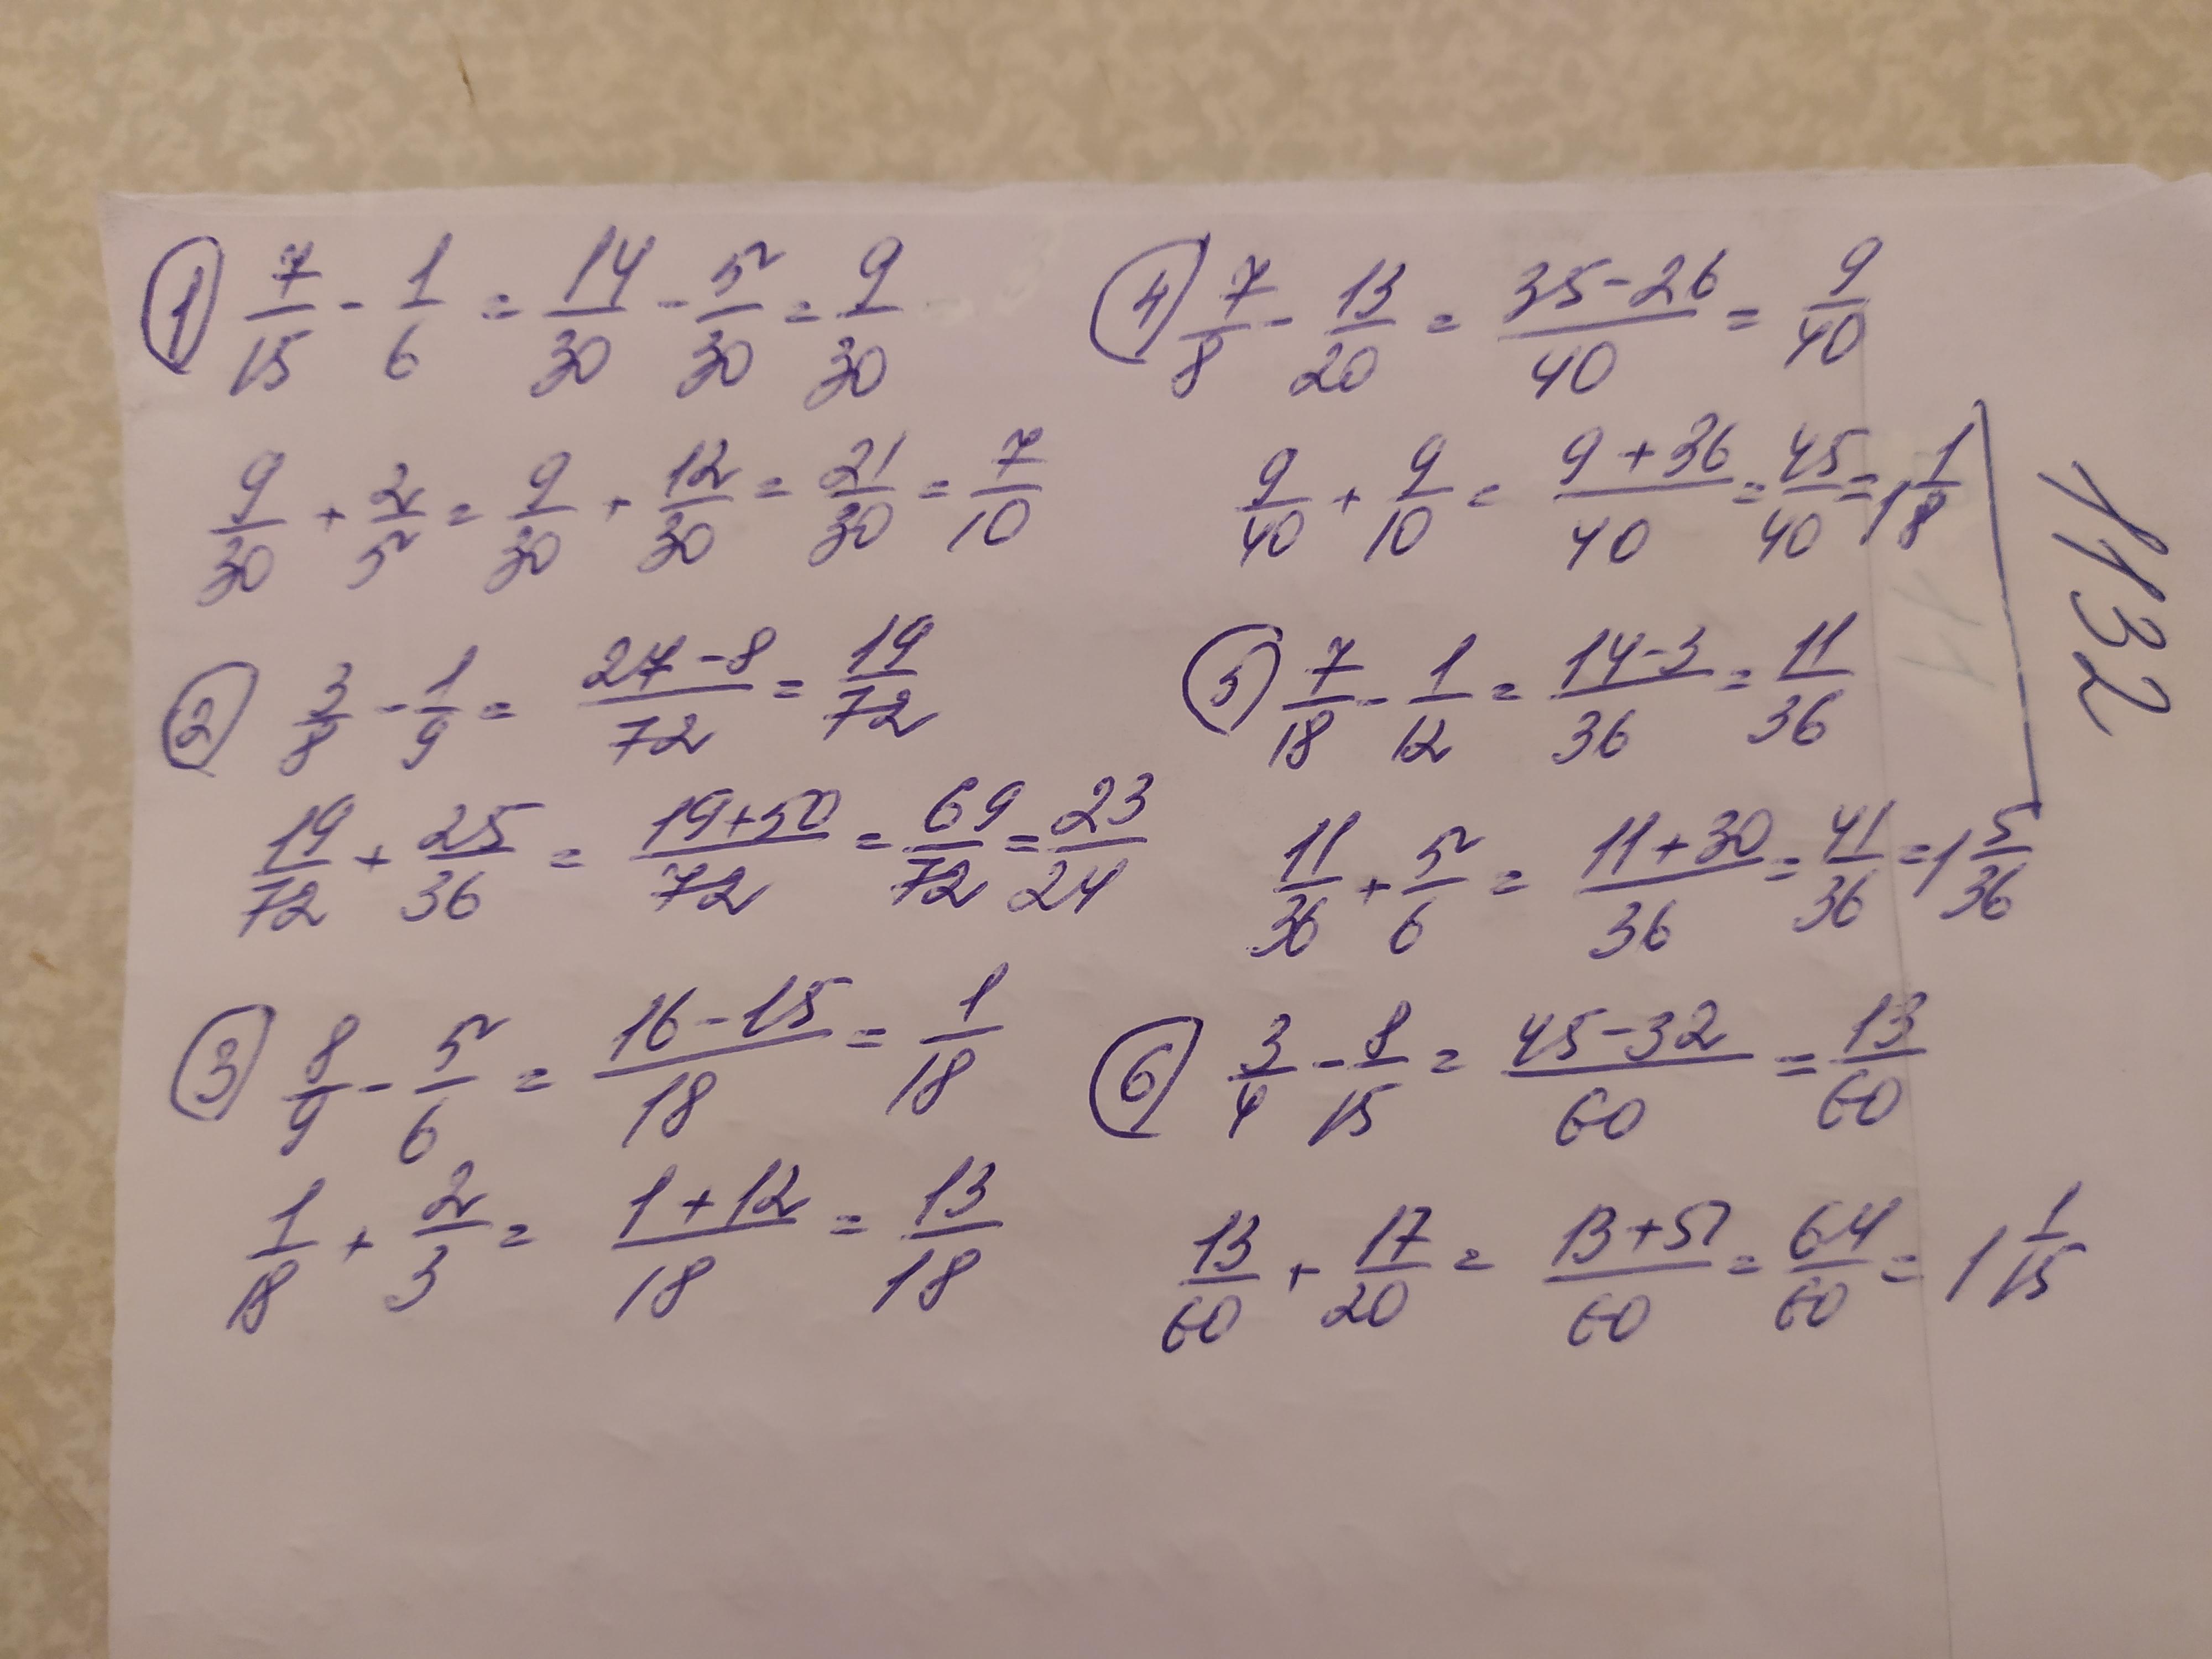 ① 7/15 - 1/6 = 14/30 - 5/30 = 9/30
9/30 + 2/5 = 9/30 + 12/30 = 21/30 = 7/10
② 3/8 - 1/9 = 27-8/72 = 19/72
19/72 + 25/36 = 19+50/72 = 69/72 = 23/24
③ 8/9 - 5/6 = 16-15/18 = 1/18
1/18 + 2/3 = 1+12/18 = 13/18
④ 7/8 - 13/20 = 35-26/40 = 9/40
9/40 + 9/10 = 9+36/40 = 45/40 = 1 1/8
⑤ 7/18 - 1/12 = 14-3/36 = 11/36
11/36 + 5/6 = 11+30/36 = 41/36 = 1 5/36
⑥ 3/4 - 8/15 = 45-32/60 = 13/60
13/60 + 17/20 = 13+51/60 = 64/60 = 1 1/15
1132